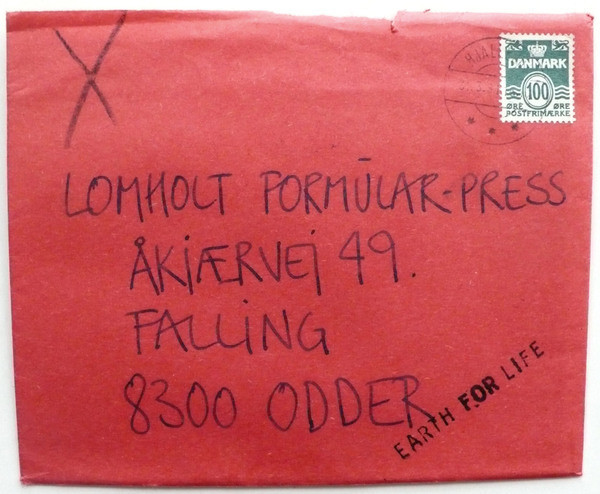 X
DANMARK
100
ØRE ØRE
POSTFRIMÆRKE
LOMHOLT FORMŪLAR-PRESS
ÅKJÆRVEJ 49.
FALLING
8300 ODDER
EARTH FOR LIFE